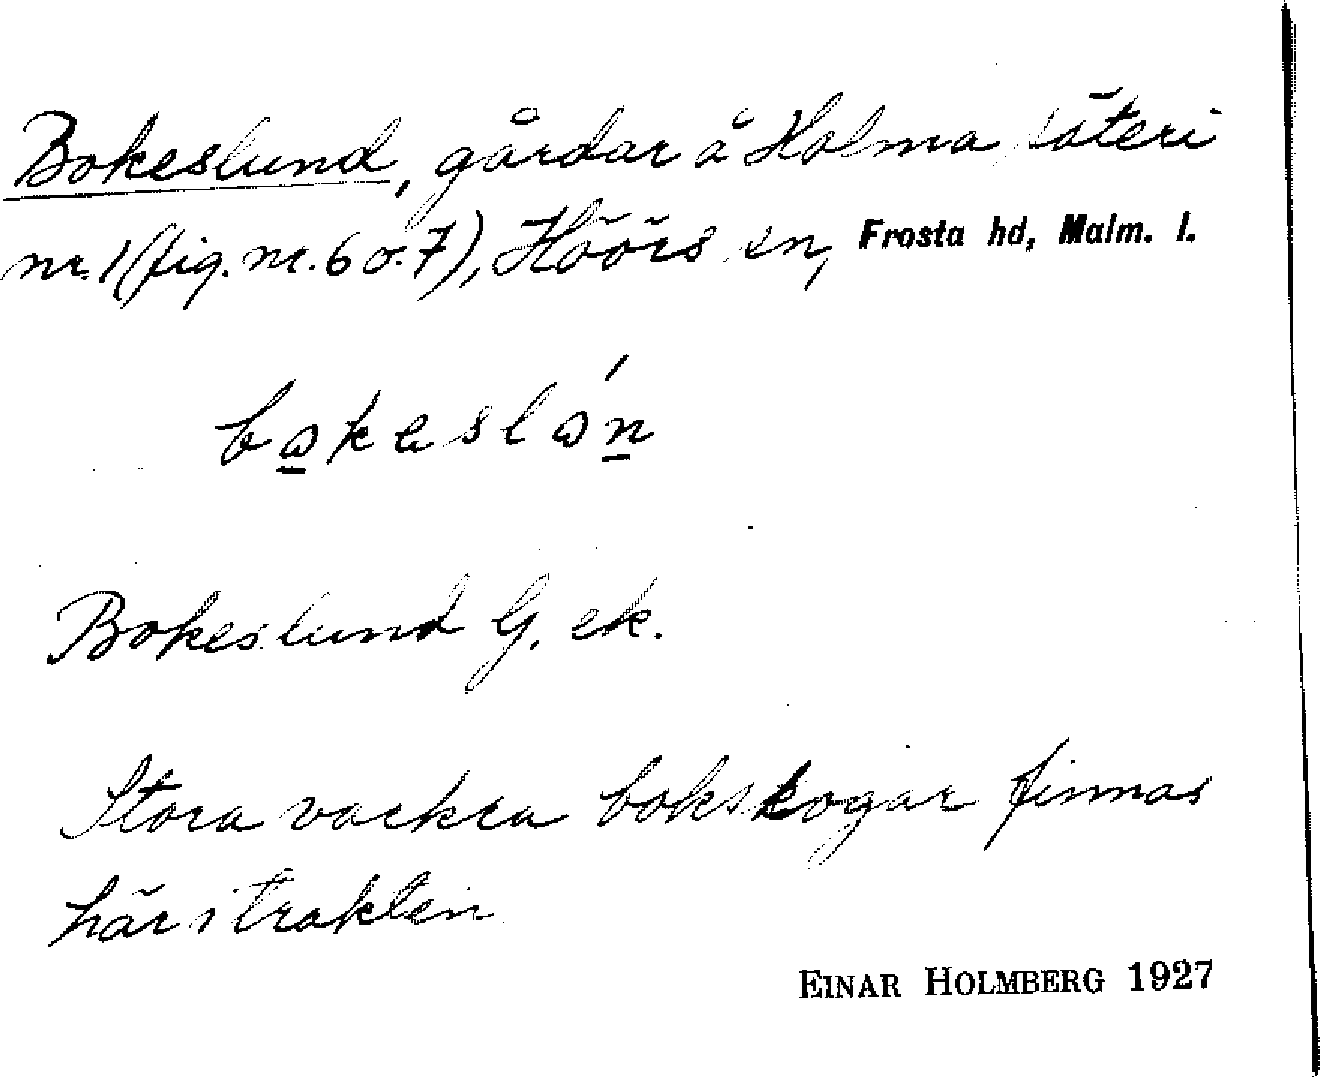 Bokeslund, gårdar å Holma säteri
nr. 1 (fig. nr. 6 o. 7), Höörs sn, Frosta hd, Malm. l.
Bokeslund G. ek.
Stora vackra bokskogar finnas
här i trakten
EINAR HOLMBERG 1927